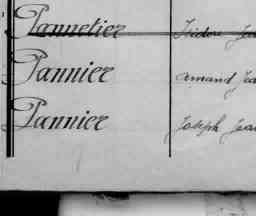 Pannetier Isidore
Pannier Amand
Pannier Joseph Jean